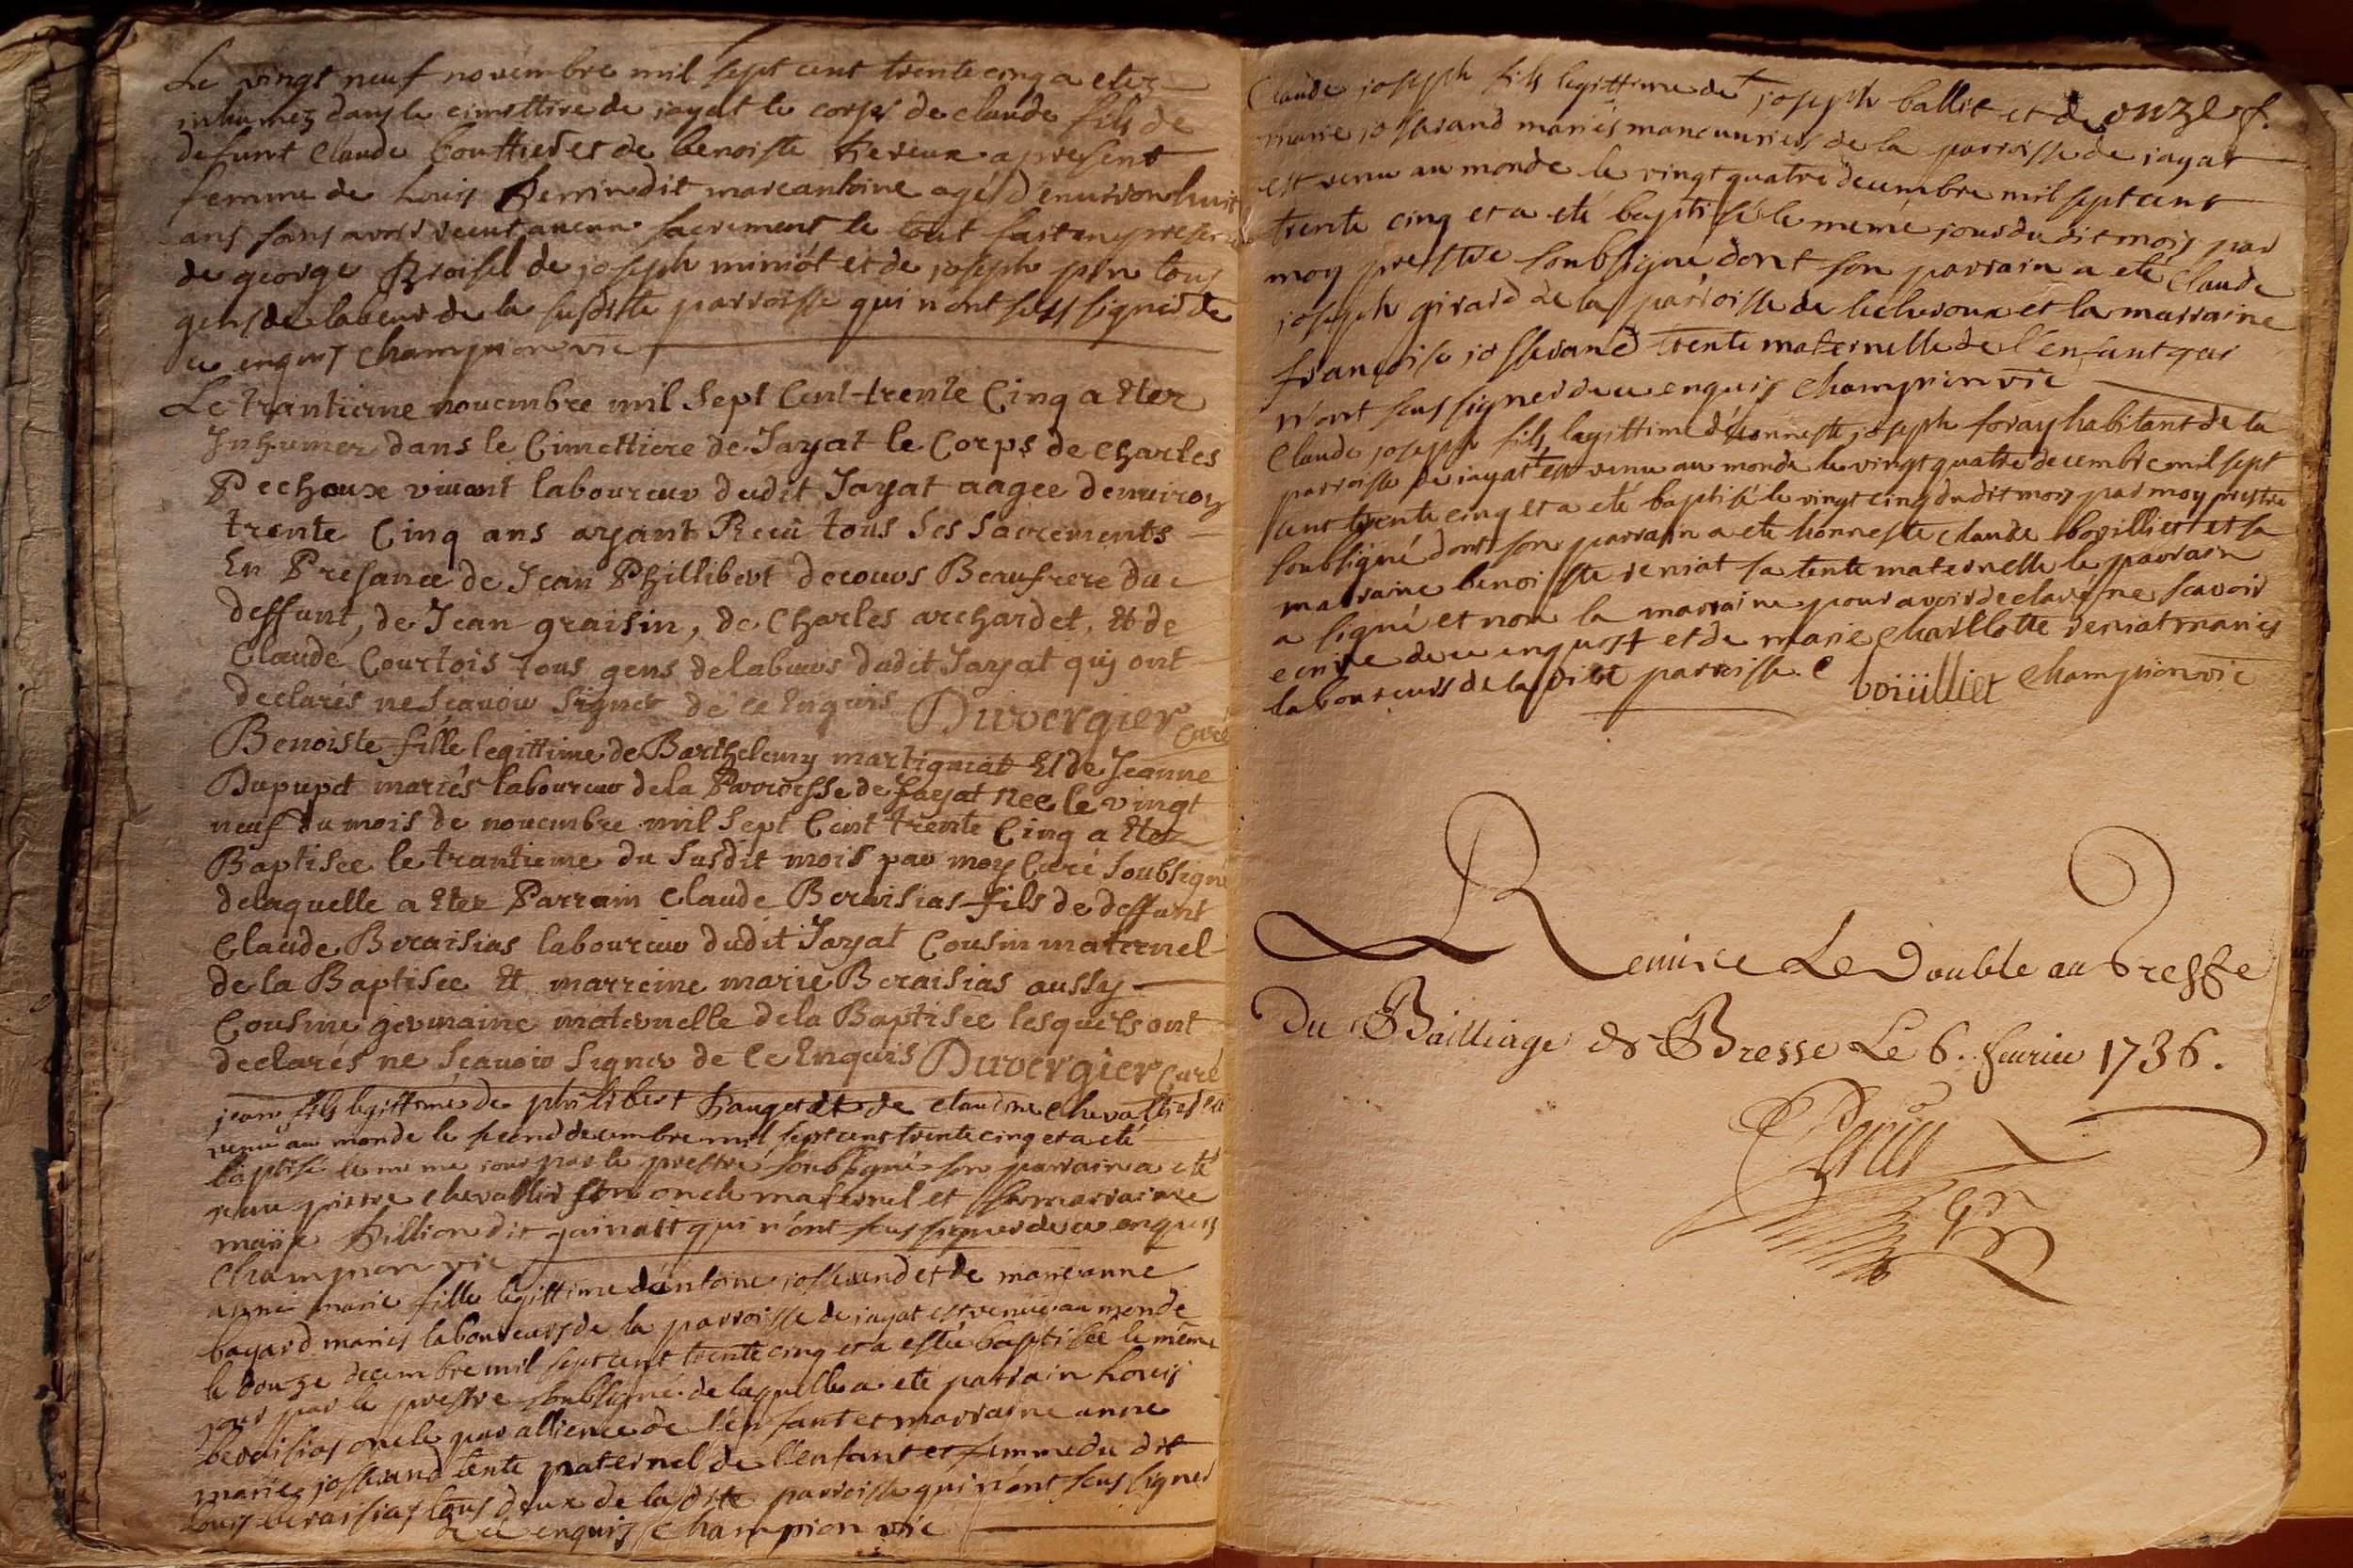 Le vingt neuf novembre mil sept cent trente cinq a etez
inhumez dans le cimettire de jayat le corps de claude fils de
defunt claude bouttier et de benoiste a present
femme de Louis perrin dit marcantoine agé d'environ huit
ans sans avoir receut aucun sacrement le tout fait en presence
de george de joseph miniot et de joseph pin tous
gens de labeur de la susditte parroisse qui n'ont seus signer de
ce enquis Champion vic
Le trantieme nouembre mil Sept Cent trente Cinq a Eter
Inhumer dans le Cimettiere de Jayat le Corps de Charles
Pechoux viuant laboureur dudit Jayat aagee denuiron
trente Cinq ans ayant Receü tous Ses Sacrements
En Presance de Jean Phillibert decours Beaufrere du
deffunt, de Jean graisin, de Charles archardet, Et de
Claude Courtois tous gens delabeurs dudit Jayat quj ont
declarés ne Sçauoir Signer de ce Enquis Duvergier Curé
Benoiste fille legittime de Barthelemy martignat Et de Jeanne
Dupupet mariés laboureur dela Parroisse de Jayat née le vingt
neuf du mois de nouembre mil Sept Cent trente Cinq a Etez
Baptisee le trantieme du Susdit mois par moy Curé Soubsigné
delaquelle a Eter Parrain Claude Beraisias fils de deffunt
Claude Beraisias laboureur dudit Jayat Cousin maternel
de la Baptisee Et marreine marie Beraisias aussy
Cousine germaine maternelle dela Baptisee lesquels ont
declarés ne Sçauoir Signer de Ce Enquis Duvergier Curé
jean fils legittime de philibert et de claudine chevallier est
venu au monde le second decembre mil sept cens trente cinq et a eté
baptisé le meme jour par le prestre soubsigné son parrain a eté
jean pierre chevallier son oncle maternel et sa marraine
marie billion dit qui n'ont seus signer de ce enquis
Champion vic
anne marie fille legittime d'antoine josserand et de marianne
bayard mariés laboureurs de la parroisse de jayat est venue au monde
le douze decembre mil sept cent trente cinq et a estée baptisée le même
jour par le prestre soubsigné de laquelle a eté parrain Louis
beraisias oncle par allience de l'enfant et marraine anne
marie josserand tente paternel de l'enfant et femme du dit
louis beraisias tous deux de la ditte parroisse qui n'ont seus signer
de ce enquis Champion vic
Claude joseph fils legittime de joseph ballet et de onze f.
marie josserand mariés maneuuriers de la parroisse de jayat
est venu au monde le vingt quatre decembre mil sept cent
trente cinq et a eté baptisé le meme jour du dit mois par
moy prestre soubsigné dont son parrain a eté Claude
joseph girard de la parroisse de lecheroux et la marraine
françoise josserand trente maternelle de l'enfant qui
n'ont seus signer de ce enquis Champion vic
Claude joseph fils legittime d'honneste joseph foray habitant de la
parroisse de jayat est venu au monde le vingt quatre decembre mil sept
cent trente cinq et a eté baptisé le vingt cinq du dit mois par moy prestre
soubsigné dont son parrain a eté honneste claude bovilliet et sa
marraine benoiste reniat sa tente maternelle le parrain
a signé et non la marraine pour avoir declaré ne scavoir
ecrire de ce enquist et de marie charllotte reniat mariés
laboureurs de la dite parroisse. bouilliet Champion vic
Remise Le Double au Greffe
Du Bailliage de Bresse Le 6. feurier 1736.